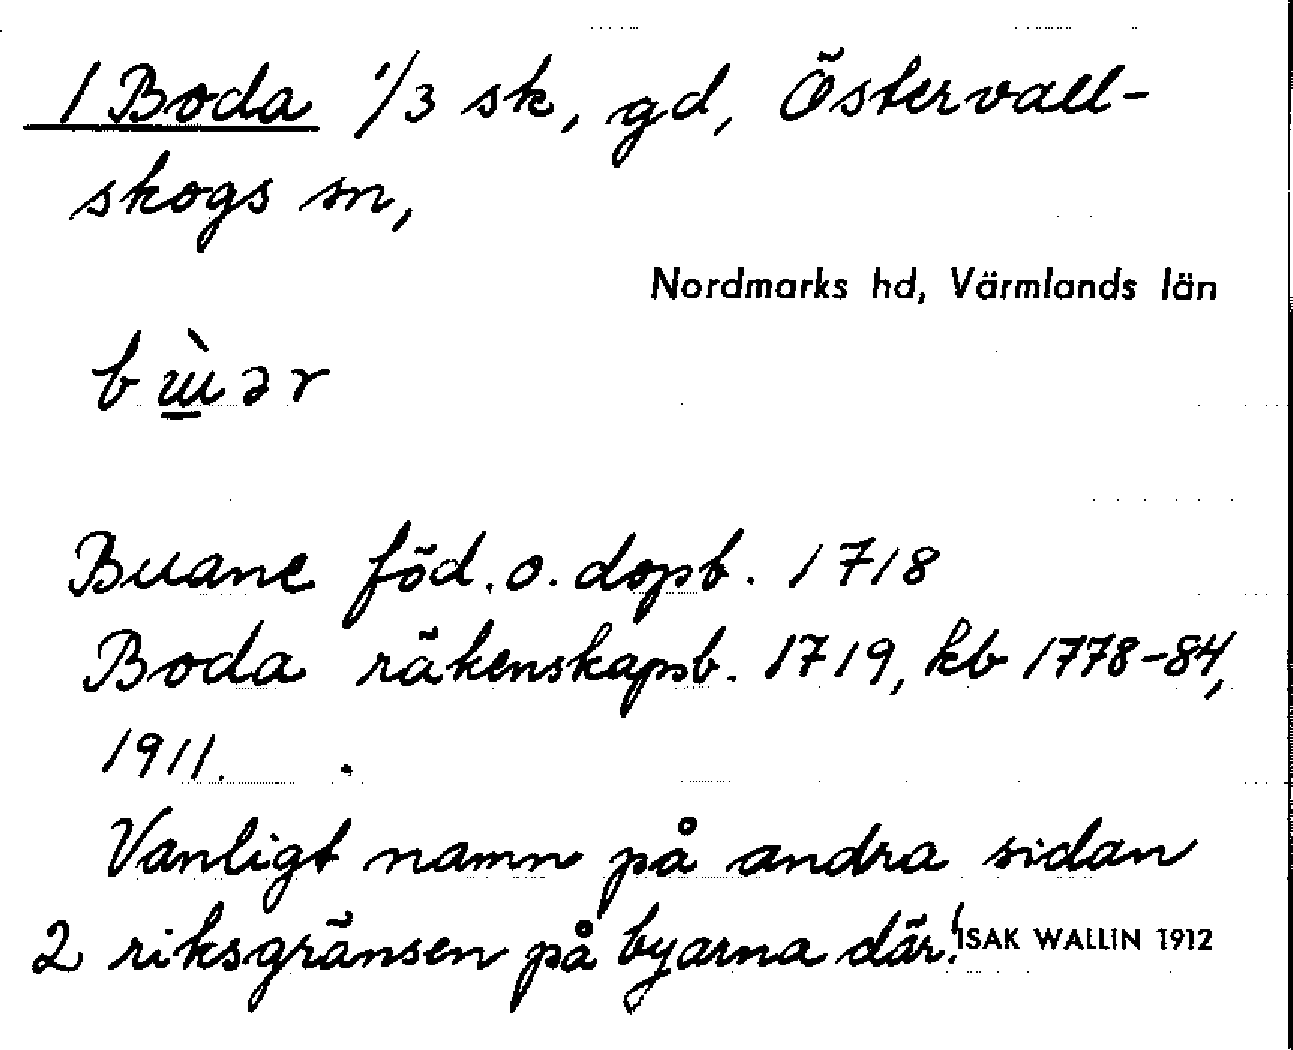 1 Boda 1/3 sk, gd, Östervall-
skogs sn,
Nordmarks hd, Värmlands län
bɯ̀ər
Buane föd. o. dopb. 1718
Boda räkenskapsb. 1719, kb 1778-84,
1911.
Vanligt namn på andra sidan
2 riksgränsen på byarna där!
ISAK WALLIN 1912